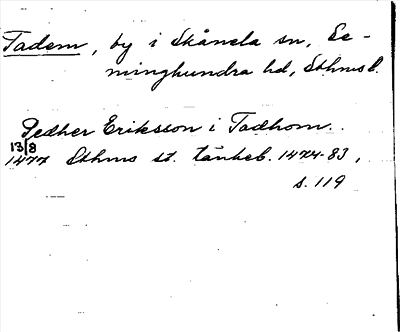 Tadem, by i Skånela sn, Se-
minghundra hd, Sthms l.
Pedher Eriksson i Tadhom.
13/8
1477 Sthms st. tänkeb. 1474-83,
s. 119